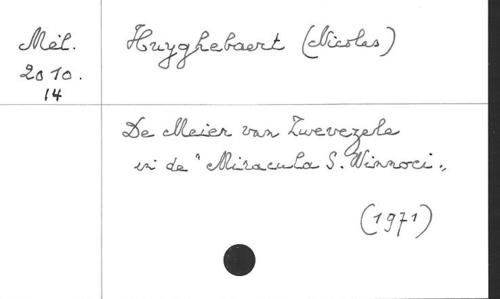 Mél.
2010.
14
Huyghebaert (Nicolas)
De Meier van Zwevezele
in de "Miracula S. Winnoci„
(1971)